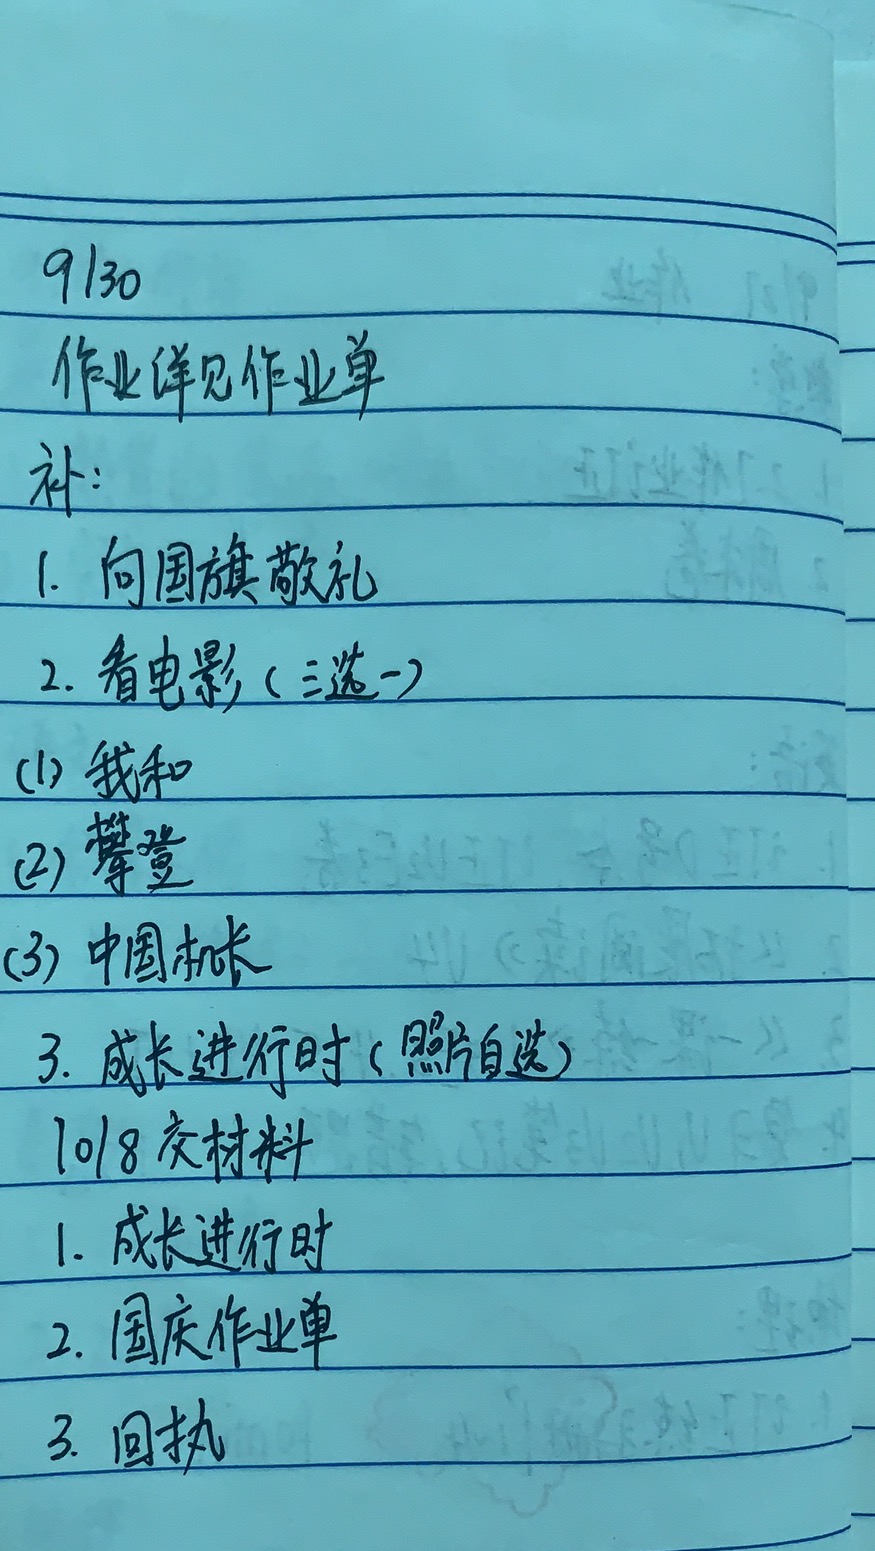 9/30
作业详见作业单
补:
1. 向国旗敬礼
2. 看电影(三选一)
(1) 我和
(2) 攀登
(3) 中国机长
3. 成长进行时(照片自选)
10/8 交材料
1. 成长进行时
2. 国庆作业单
3. 回执